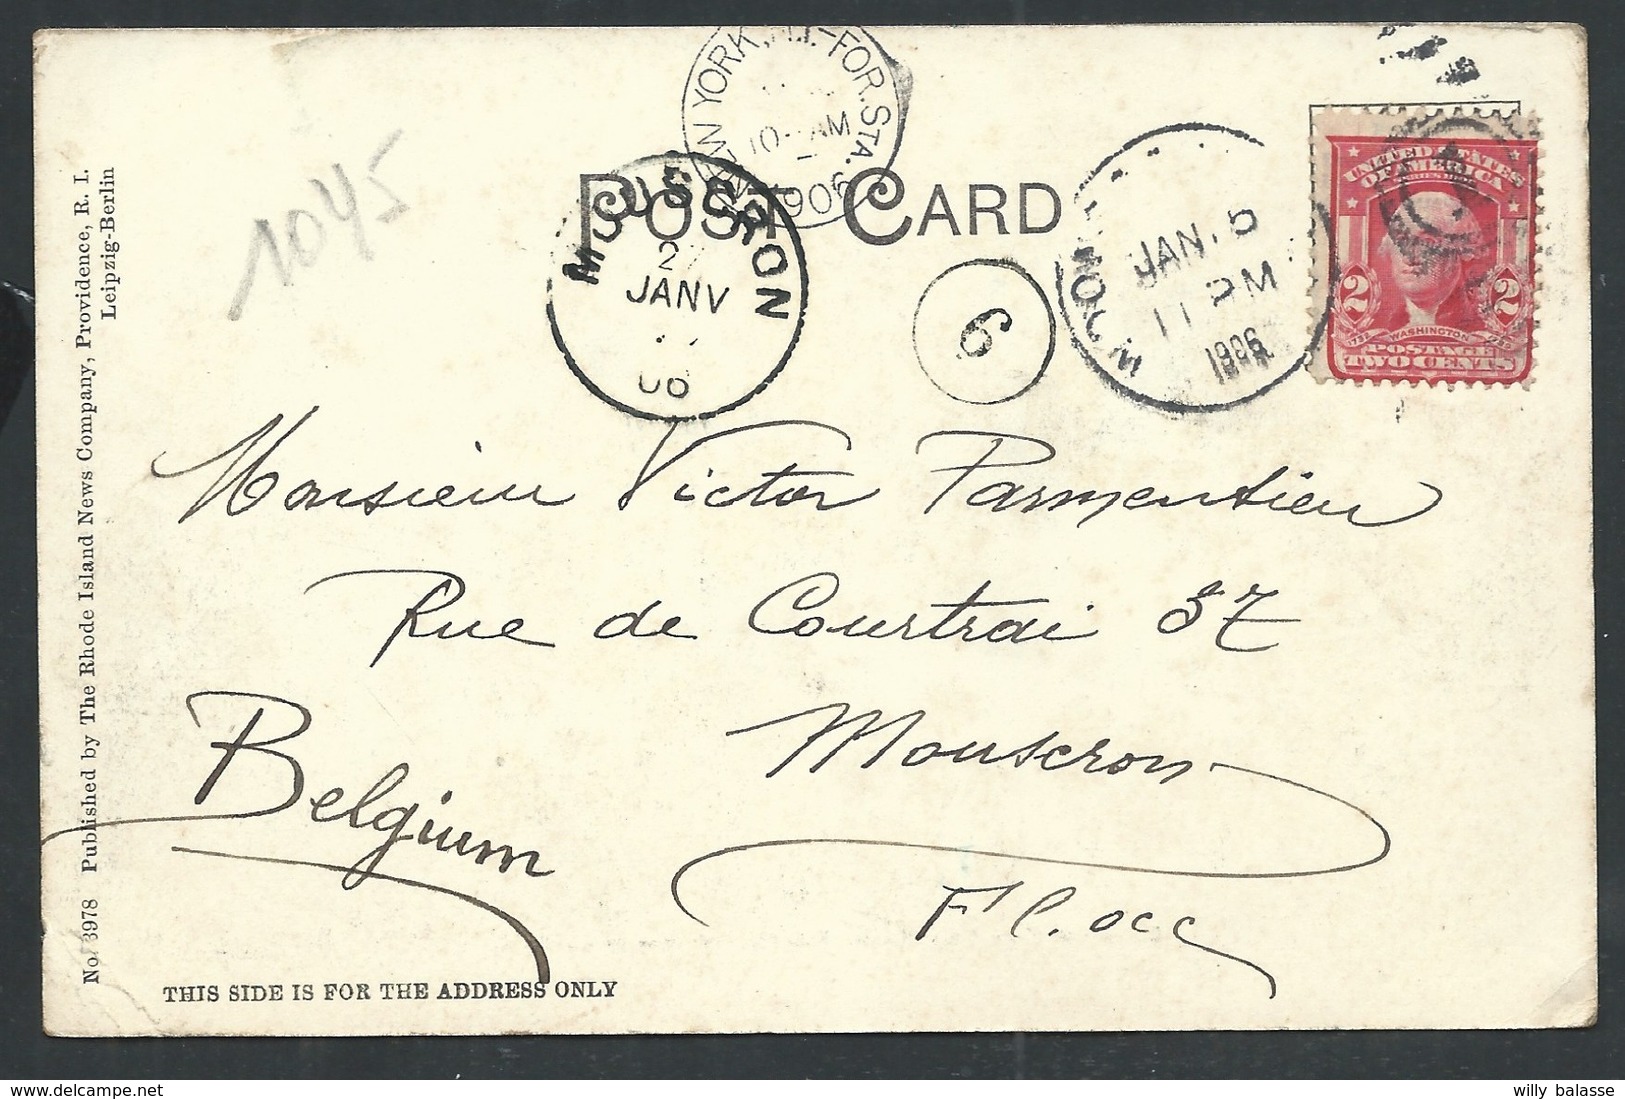 NEW YORK, N.Y.-FOR. STA.
10-AM
1906
POST CARD
MOUSCRON
JANV
06
6
JAN. 5
11 PM
1906
UNITED STATES
OF AMERICA
2 2
WASHINGTON
POSTAGE
TWO CENTS
1045
Monsieur Victor Parmentier
Rue de Courtrai 37
Mouscron
Belgium
Fl. occ
THIS SIDE IS FOR THE ADDRESS ONLY
No. 3978 Published by The Rhode Island News Company, Providence, R. I.
Leipzig-Berlin
willy balasse